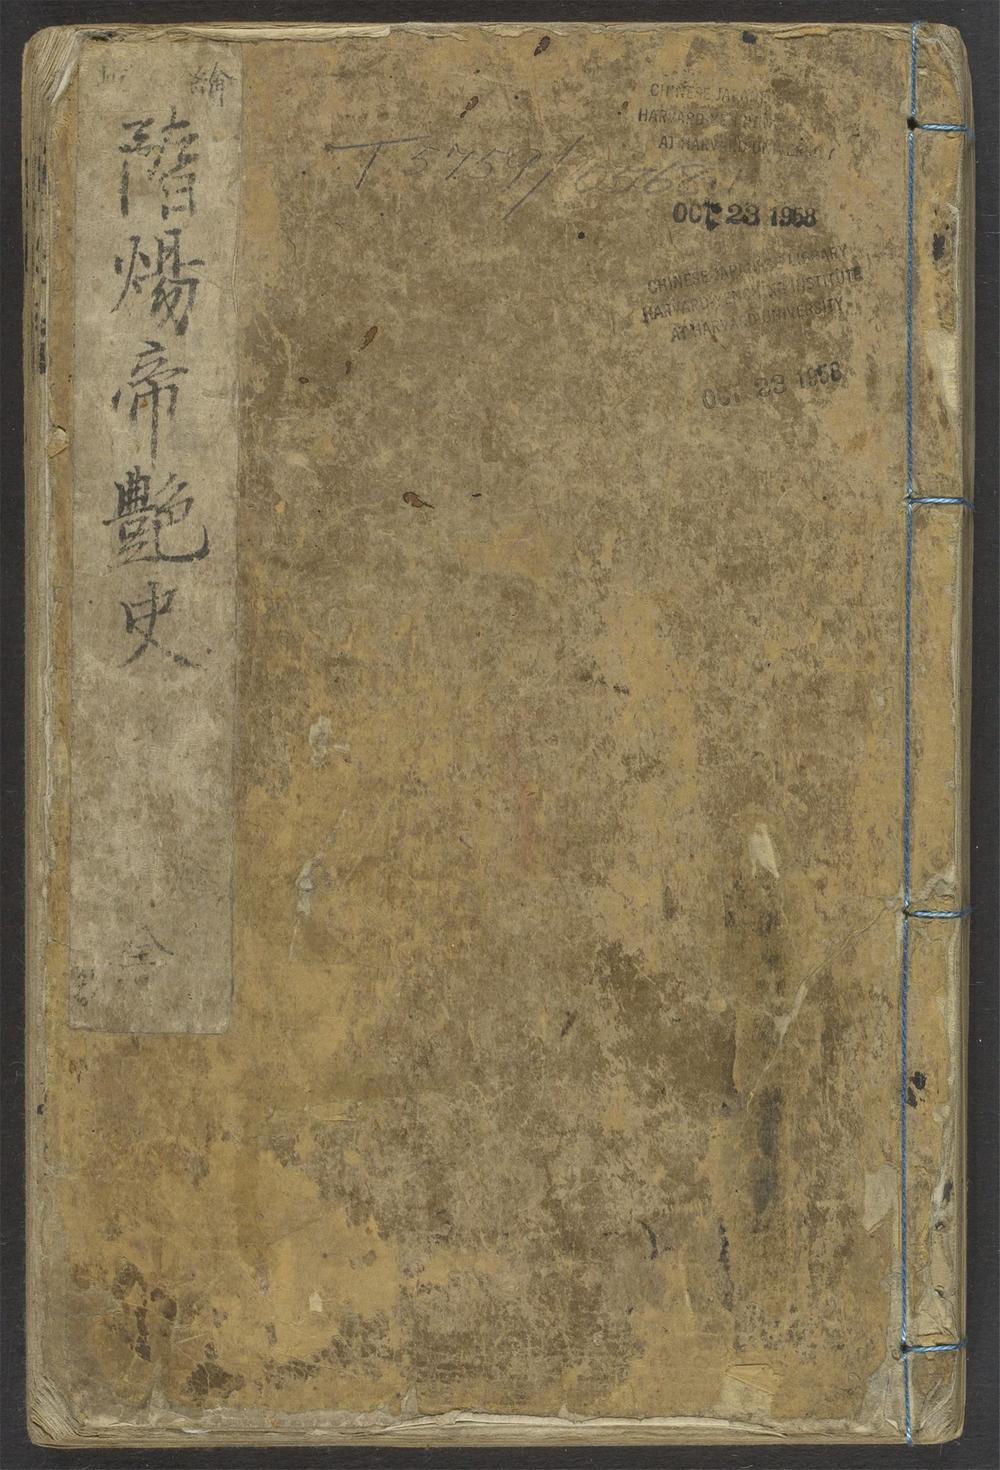 繪
隋煬帝艷史
全
T 5759/6376
CHINESE JAPANESE
HARVARD-YENCHING
AT HARVARD UNIVERSITY
OCT 23 1958
CHINESE JAPANESE LIBRARY
HARVARD-YENCHING INSTITUTE
AT HARVARD UNIVERSITY
OCT 23 1958